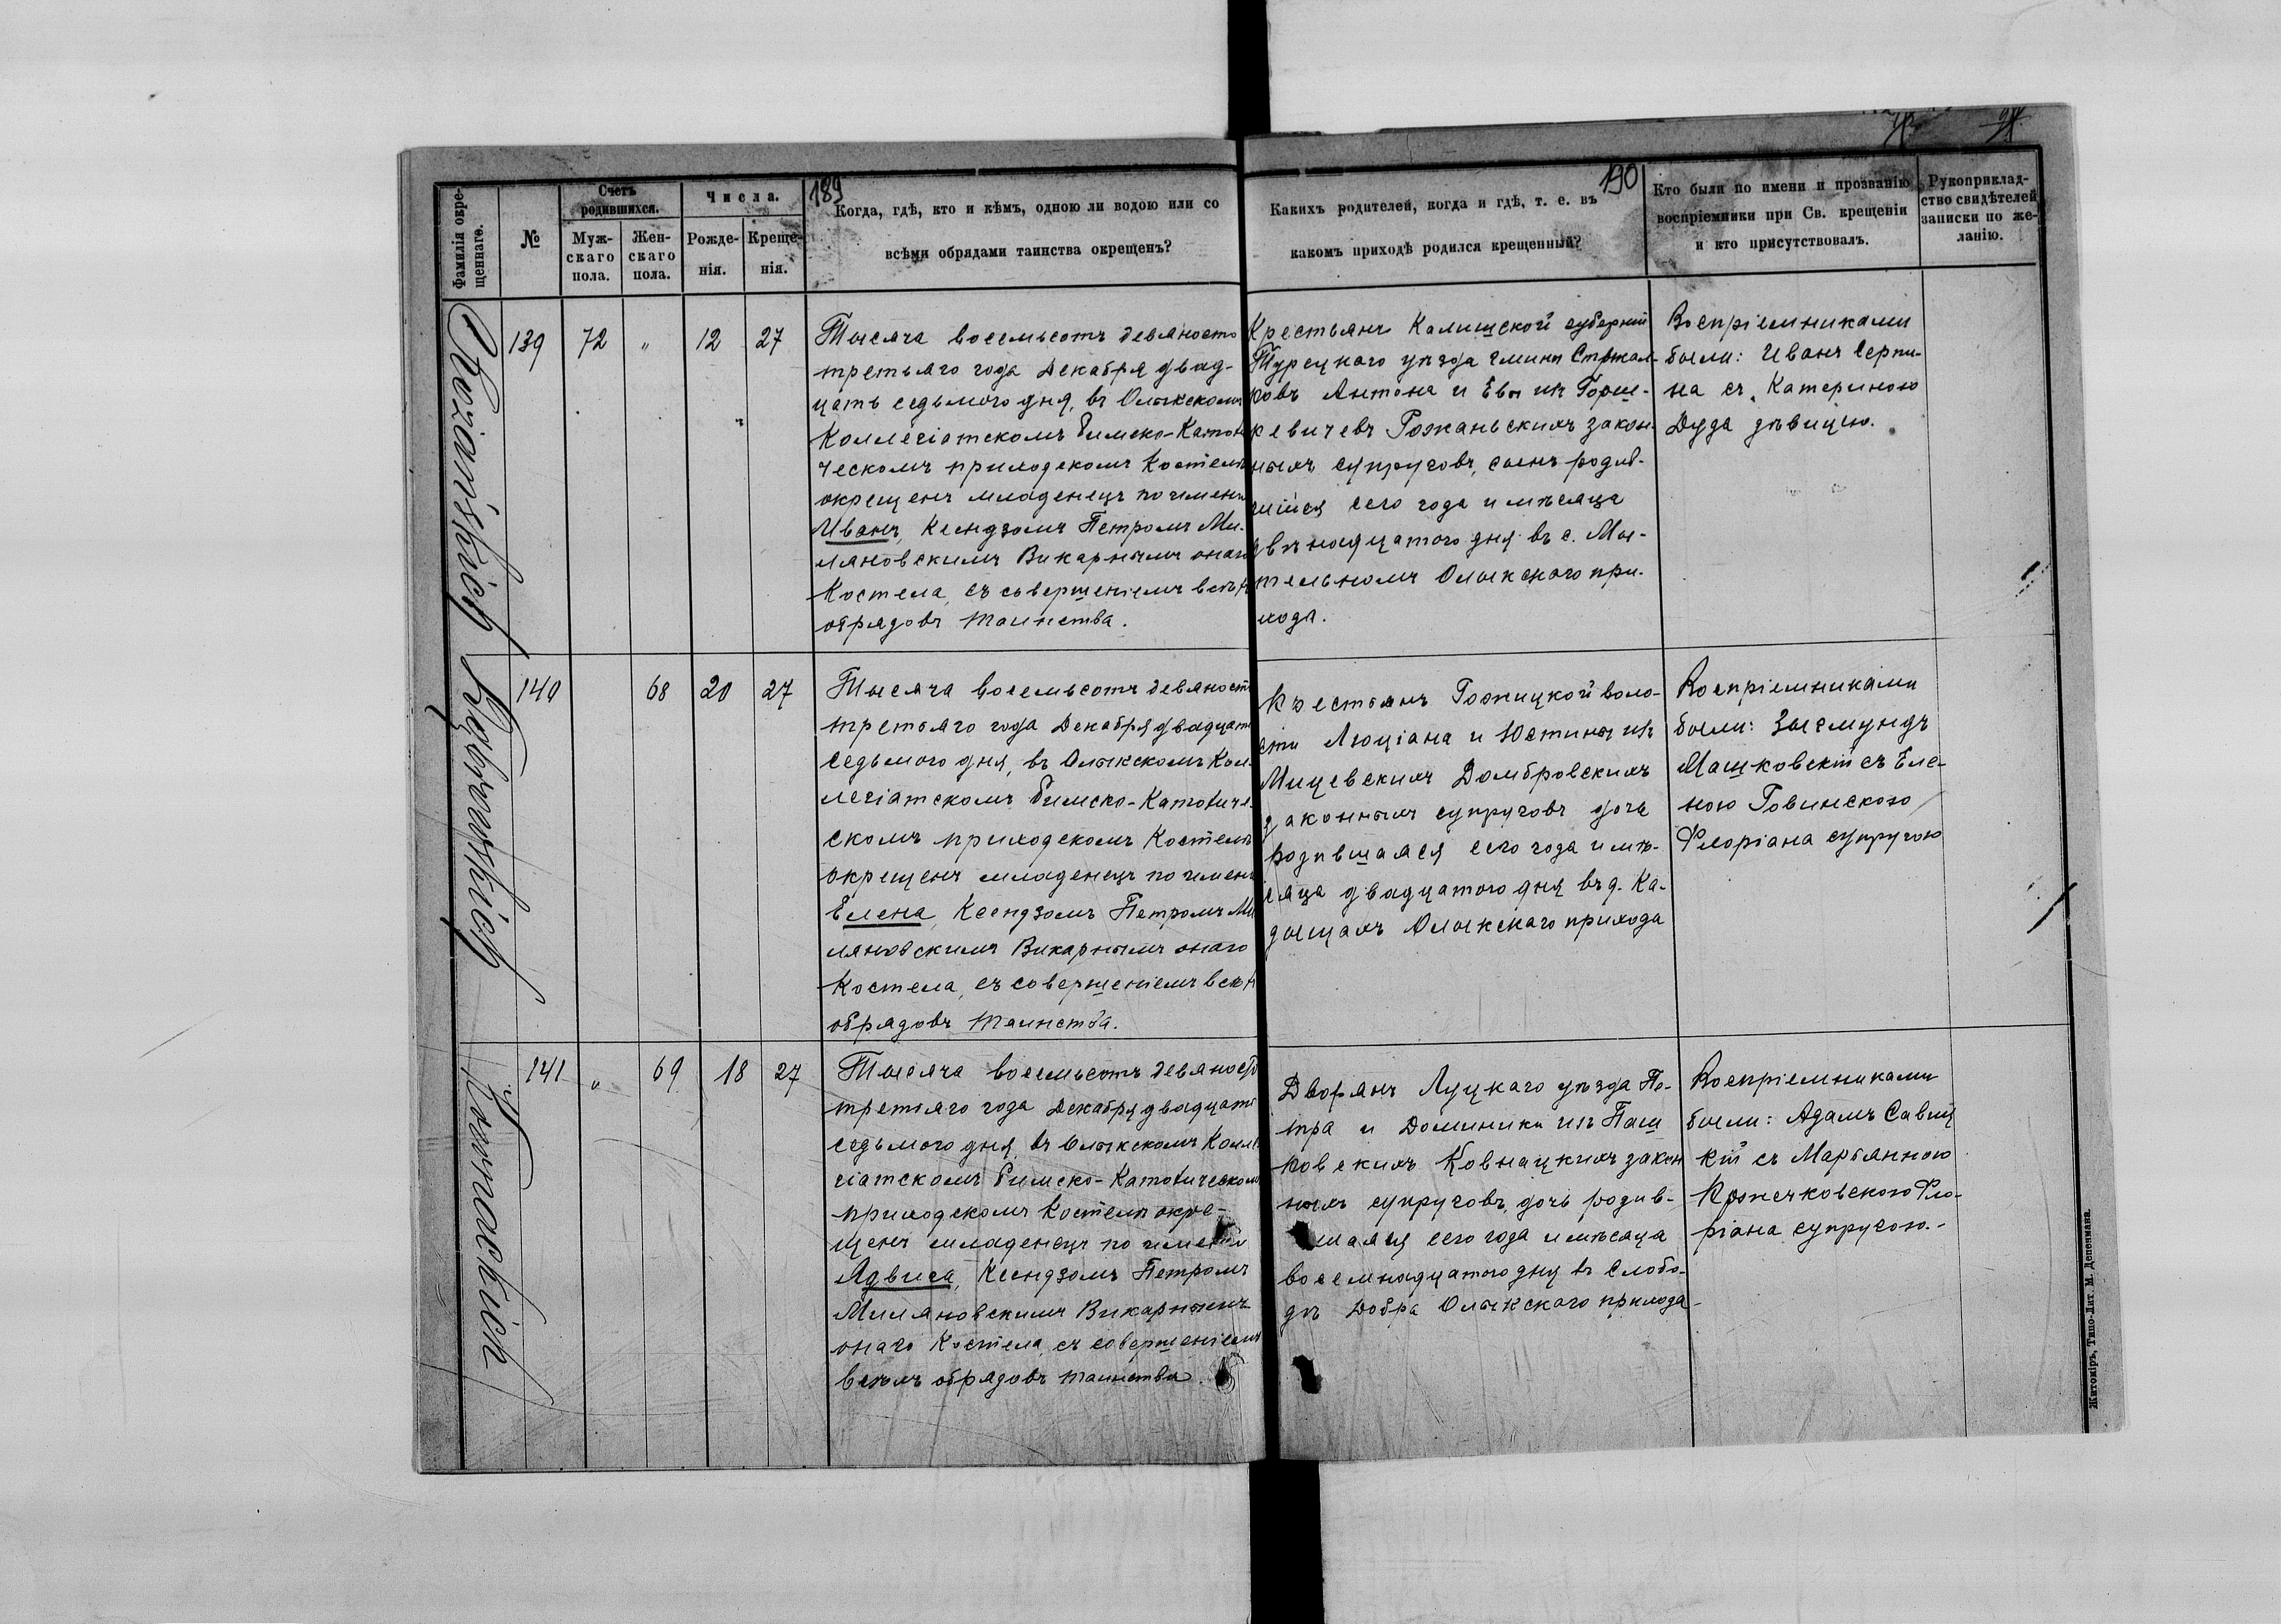 189
190
Фамилія окре-
щеннаго.
№
Счетъ
родившихся.
Муж-
скаго
пола.
Жен-
скаго
пола.
Числа.
Рожде-
нія.
Креще-
нія.
Когда, гдѣ, кто и кѣмъ, одною ли водою или со
всѣми обрядами таинства окрещенъ?
Какихъ родителей, когда и гдѣ, т. е. въ
какомъ приходѣ родился крещенный?
Кто были по имени и прозванію
воспріемники при Св. крещеніи
и кто присутствовалъ.
Рукоприклад-
ство свидѣтелей
записки по же-
ланію.
139 72 „ 12 27
Тысяча восемьсотъ девяносто
третьяго года Декабря двад-
цать седьмого дня, въ Олыкскомъ
Коллегіатскомъ Римско-Католи
ческомъ приходскомъ Костелѣ
окрещенъ младенецъ по имени
Иванъ, Ксендзомъ Петромъ Ми-
ляновскимъ Викарнымъ онаго
Костела, съ совершеніемъ всѣхъ
обрядовъ таинства.
Крестьянъ Калишской губерніи
Турецкаго уѣзда гмины Стржал-
ковъ Антона и Евы изъ Горш-
кевичевъ Рожаньскихъ закон-
ныхъ супруговъ, сынъ родив-
шійся сего года и мѣсяца
двѣнадцатого дня въ с. Мы-
тельномъ Олыкского при-
хода.
Воспріемниками
были: Иванъ Серпи-
на съ Катериною
Дуда дѣвицею.
140 68 20 27
Тысяча восемьсотъ девяносто
третьяго года Декабря двадцать
седьмого дня, въ Олыкскомъ Кол-
легіатскомъ Римско-Католиче-
скомъ приходскомъ Костелѣ
окрещенъ младенецъ по имени
Елена, Ксендзомъ Петромъ Ми
ляновскимъ Викарнымъ онаго
Костела, съ совершеніемъ всѣхъ
обрядовъ таинства.
Крестьянъ Рожицкой воло-
сти Люціана и Юстины изъ
Мицевскихъ Домбровскихъ
законныхъ супруговъ дочь
родившаяся сего года и мѣ-
сяца двадцатого дня въ д. Ка-
дыщахъ Олыкскаго прихода
Воспріемниками
были: Зыгмундъ
Машковскій съ Еле-
ною Говинскою
Флоріана супругою
141 „ 69 18 27
Тысяча восемьсотъ девяносто
третьяго года Декабря двадцать
седьмого дня, въ Олыкскомъ Колле
гіатскомъ Римско-Католическомъ
приходскомъ Костелѣ окре-
щенъ младенецъ по имени
Ядвига, Ксендзомъ Петромъ
Миляновскимъ Викарнымъ
онаго Костела, съ совершеніемъ
всѣхъ обрядовъ таинства.
Дворянъ Луцкаго уѣзда Пе-
тра и Доминики изъ Паш
ковскихъ Ковнацкихъ закон
ныхъ супруговъ, дочь родив-
шаяся сего года и мѣсяца
восемнадцатого дня въ Слобо-
дѣ Добра Олыкского прихода
Воспріемниками
были: Адамъ Савиц
кій съ Марьянною
Кржечковскою Фло-
ріана супругою.-
Житоміръ, Типо-Лит. М. Дененмана.